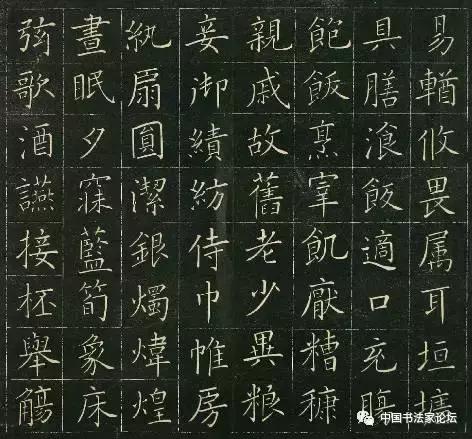 易輶攸畏属耳垣墻
具膳湌飯適口充腸
飽飫烹宰飢厭糟糠
親戚故舊老少異粮
妾御績紡侍巾帷房
紈扇圓潔銀燭煒煌
晝眠夕寐藍筍象床
弦歌酒讌接杯舉觴
中国书法家论坛